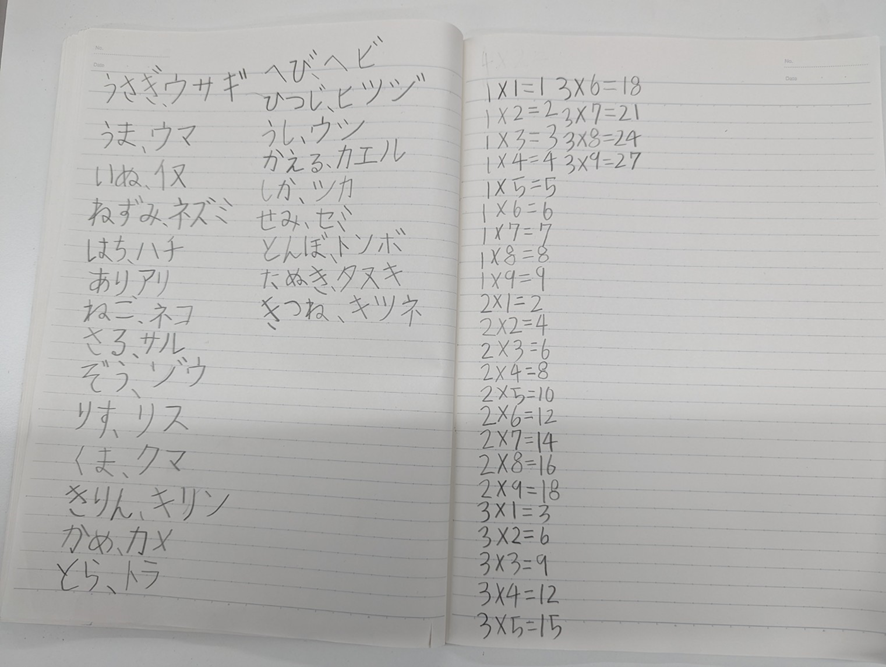 うさぎ、ウサギ
うま、ウマ
いぬ、イヌ
ねずみ、ネズミ
はち、ハチ
あり、アリ
ねご、ネコ
さる、サル
ぞう、ゾウ
りす、リス
くま、クマ
きりん、キリン
かめ、カメ
とら、トラ
へび、ヘビ
ひつじ、ヒツジ
うし、ウシ
かえる、カエル
しか、シカ
せみ、セミ
とんぼ、トンボ
たぬき、タヌキ
きつね、キツネ
No.
Date
1×1=1 3×6=18
1×2=2 3×7=21
1×3=3 3×8=24
1×4=4 3×9=27
1×5=5
1×6=6
1×7=7
1×8=8
1×9=9
2×1=2
2×2=4
2×3=6
2×4=8
2×5=10
2×6=12
2×7=14
2×8=16
2×9=18
3×1=3
3×2=6
3×3=9
3×4=12
3×5=15
No.
Date